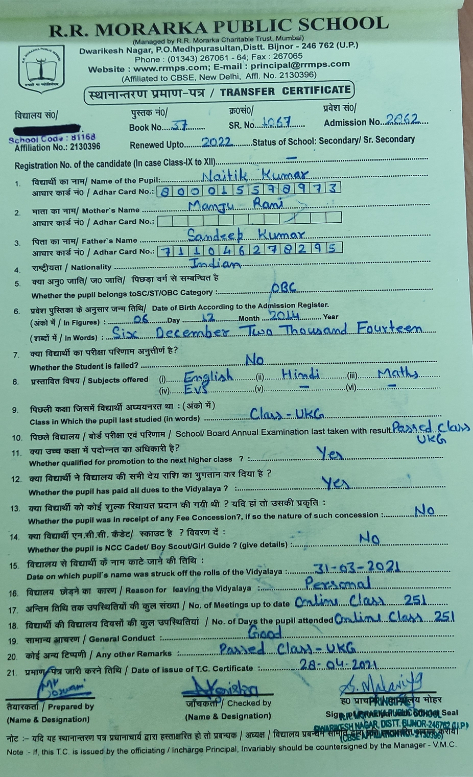 R.R. MORARKA PUBLIC SCHOOL
(Managed by R.R. Morarka Charitable Trust, Mumbai)
Dwarikesh Nagar, P.O.Medhpurasultan,Distt. Bijnor - 246 762 (U.P.)
Phone : (01343) 267061 - 64; Fax : 267065
Website : www.rrmps.com; E-mail : principal@rrmps.com
(Affiliated to CBSE, New Delhi, Affl. No. 2130396)
स्थानान्तरण प्रमाण-पत्र / TRANSFER CERTIFICATE
विद्यालय सं०/ पुस्तक सं०/ क्र०सं०/ प्रवेश सं०/
Book No. 37 SR. No. 1067 Admission No. 2062
School Code : 81168
Affiliation No.: 2130396 Renewed Upto. 2022 Status of School: Secondary/ Sr. Secondary
Registration No. of the candidate (In case Class-IX to XII) –
1. विद्यार्थी का नाम/ Name of the Pupil: Naitik Kumar
आधार कार्ड नं० / Adhar Card No.: 800015578973
2. माता का नाम/ Mother's Name Manju Rani
आधार कार्ड नं० / Adhar Card No.:
3. पिता का नाम/ Father's Name Sandeep Kumar
आधार कार्ड नं० / Adhar Card No.: 711046278295
4. राष्ट्रीयता / Nationality Indian
5. क्या अनु० जाति/ ज० जाति/ पिछड़ा वर्ग से सम्बन्धित है
Whether the pupil belongs toSC/ST/OBC Category : OBC
6. प्रवेश पुस्तिका के अनुसार जन्म तिथि/ Date of Birth According to the Admission Register.
(अंको में / In Figures) : 06 Day 12 Month 2014 Year
(शब्दों में / In Words) : Six December Two Thousand Fourteen
7. क्या विद्यार्थी का परीक्षा परिणाम अनुत्तीर्ण है?
Whether the Student is failed? No
8. प्रस्तावित विषय / Subjects offered (i) English (ii) Hindi (iii) Maths
(iv) EVS (v) – (vi) –
9. पिछली कक्षा जिसमें विद्यार्थी अध्ययनरत था : (अंको में)
Class in Which the pupil last studied (in words) Class - UKG
10. पिछले विद्यालय / बोर्ड परीक्षा एवं परिणाम / School/ Board Annual Examination last taken with result Passed Class UKG
11. क्या उच्च कक्षा में पदोन्नत का अधिकारी है?
Whether qualified for promotion to the next higher class ? Yes
12. क्या विद्यार्थी ने विद्यालय की सभी देय राशि का भुगतान कर दिया है ?
Whether the pupil has paid all dues to the Vidyalaya ? Yes
13. क्या विद्यार्थी को कोई शुल्क रियायत प्रदान की गयी थी ? यदि हां तो उसकी प्रकृति :
Whether the pupil was in receipt of any Fee Concession?, if so the nature of such concession : No
14. क्या विद्यार्थी एन.सी.सी. कैडेट/ स्काउट है ? विवरण दें :
Whether the pupil is NCC Cadet/ Boy Scout/Girl Guide ? (give details) : No
15. विद्यालय से विद्यार्थी के नाम काटे जाने की तिथि :
Date on which pupil's name was struck off the rolls of the Vidyalaya : 31-03-2021
16. विद्यालय छोड़ने का कारण / Reason for leaving the Vidyalaya Personal
17. अन्तिम तिथि तक उपस्थितियों की कुल संख्या / No. of Meetings up to date Online Class 251
18. विद्यार्थी की विद्यालय दिवसों की कुल उपस्थितियाँ / No. of Days the pupil attended Online Class 251
19. सामान्य आचरण / General Conduct : Good
20. कोई अन्य टिप्पणी / Any other Remarks : Passed Class - UKG
21. प्रमाण पत्र जारी करने तिथि / Date of issue of T.C. Certificate : 28-04-2021
तैयारकर्ता / Prepared by जाँचकर्ता / Checked by ह० प्राचार्य मोहर
(Name & Designation) (Name & Designation) Seal
PRINCIPAL
R.R. MORARKA PUBLIC SCHOOL
DWARIKESH NAGAR, DISTT. BIJNOR-246762 (U.P.)
(CBSE AFFILIATION NO. 2130396)
Note :- if, this T.C. is issued by the officiating / incharge Principal, Invariably should be countersigned by the Manager - V.M.C.